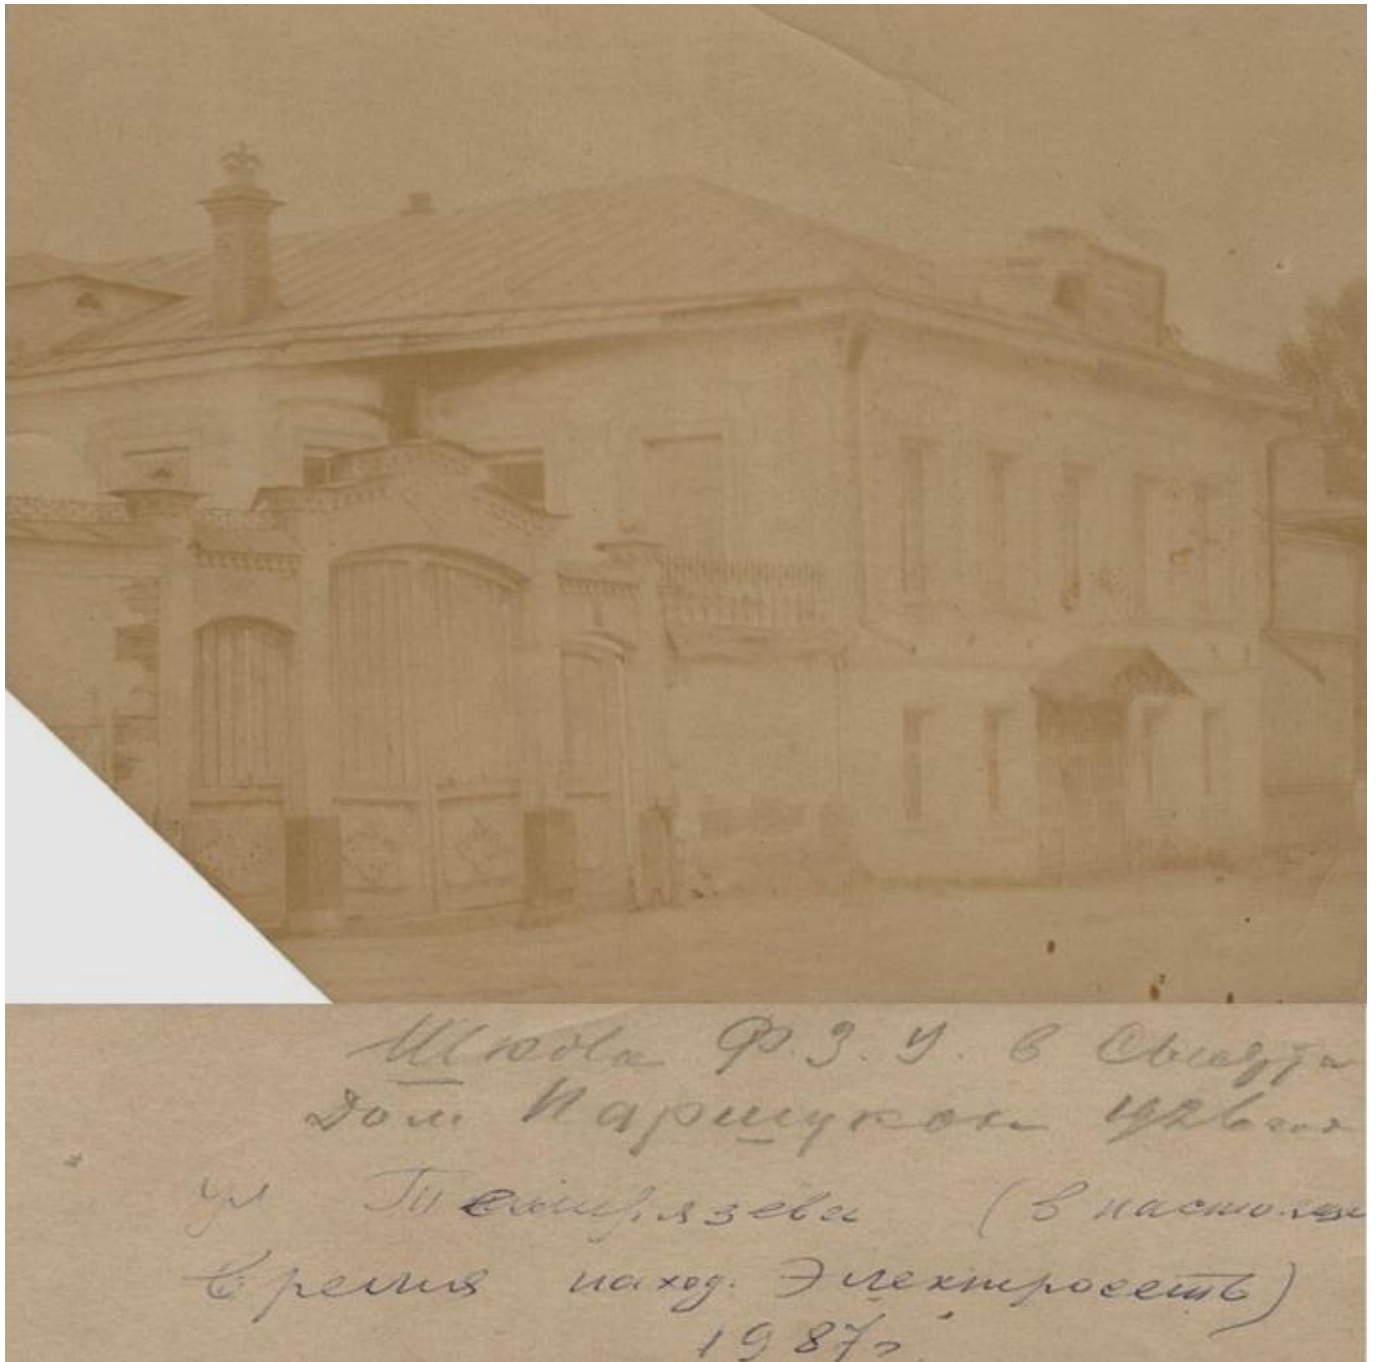 Школа Ф.З.У. в
Дом Паршукова
ул Тимирязева (в настоящ
время наход. Электросеть)
1987г.